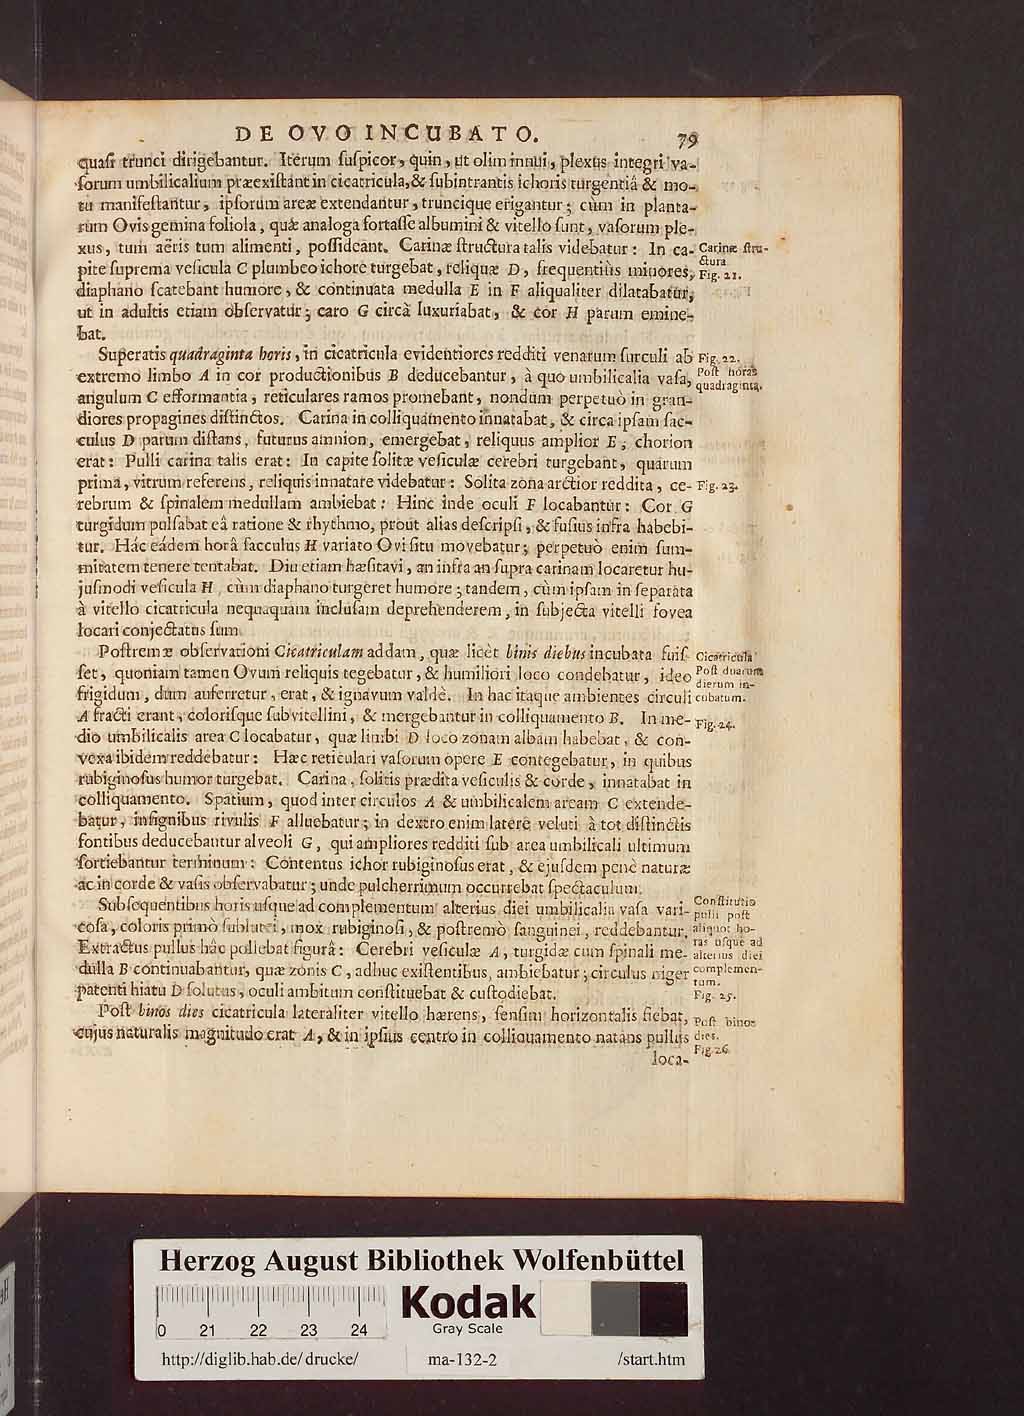 DE OVO INCUBATO. 79
quasi trunci dirigebantur. Iterum suspicor, quin, ut olim innui, plexus integri va-
sorum umbilicalium præexistant in cicatricula, & subintrantis ichoris turgentiâ & mo-
tu manifestantur, ipsorum areæ extendantur, truncique erigantur; cùm in planta-
rum Ovis gemina foliola, quæ analoga fortasse albumini & vitello sunt, vasorum ple-
xus, tum aëris tum alimenti, possideant. Carinæ structura talis videbatur: In ca-
Carinæ stru-
ctura
Fig. 21.
pite suprema vesicula C plumbeo ichore turgebat, reliquæ D, frequentiùs minores,
diaphano scatebant humore, & continuata medulla E in F aliqualiter dilatabatur,
ut in adultis etiam observatur; caro G circà luxuriabat, & cor H parum emine-
bat.
Superatis quadraginta horis, in cicatricula evidentiores redditi venarum surculi ab
Fig. 22.
Post horas
quadraginta.
extremo limbo A in cor productionibus B deducebantur, à quo umbilicalia vasa,
angulum C efformantia, reticulares ramos promebant, nondum perpetuò in gran-
diores propagines distinctos. Carina in colliquamento innatabat, & circa ipsam sac-
culus D parum distans, futurus amnion, emergebat, reliquus amplior E, chorion
erat: Pulli carina talis erat: In capite solitæ vesiculæ cerebri turgebant, quarum
prima, vitrum referens, reliquis innatare videbatur: Solita zona arctior reddita, ce-
Fig. 23.
rebrum & spinalem medullam ambiebat: Hinc inde oculi F locabantur: Cor G
turgidum pulsabat eâ ratione & rhythmo, prout alias descripsi, & fusius infra habebi-
tur. Hác eádem horâ sacculus H variato Ovi situ movebatur; perpetuò enim sum-
mitatem tenere tentabat. Diu etiam hæsitavi, an infra an supra carinam locaretur hu-
jusmodi vesicula H, cùm diaphano turgeret humore; tandem, cùm ipsam in separata
à vitello cicatricula nequaquam inclusam deprehenderem, in subjecta vitelli fovea
locari conjectatus sum.
Postremæ observationi Cicatriculam addam, quæ licèt binis diebus incubata fuis-
Cicatricula
Post duarum
dierum in-
cubatum.
set, quoniam tamen Ovum reliquis tegebatur, & humiliori loco condebatur, ideo
frigidum, dum auferretur, erat, & ignavum valdè. In hac itaque ambientes circuli
A fracti erant, colorisque subvitellini, & mergebantur in colliquamento B. In me-
Fig. 24.
dio umbilicalis area C locabatur, quæ limbi D loco zonam albam habebat, & con-
vexa ibidem reddebatur: Hæc reticulari vasorum opere E contegebatur, in quibus
rubiginosus humor turgebat. Carina, solitis prædita vesiculis & corde, innatabat in
colliquamento. Spatium, quod inter circulos A & umbilicalem aream C extende-
batur, insignibus rivulis F alluebatur; in dextro enim latere veluti à tot distinctis
fontibus deducebantur alveoli G, qui ampliores redditi sub area umbilicali ultimum
sortiebantur terminum: Contentus ichor rubiginosus erat, & ejusdem penè naturæ
ac in corde & vasis observabatur; unde pulcherrimum occurrebat spectaculum.
Subsequentibus horis usque ad complementum alterius diei umbilicalia vasa vari-
Constitutio
pulli post
aliquot ho-
ras usque ad
alterius diei
complemen-
tum.
Fig. 25.
cosa, coloris primò sublutei, mox rubiginosi, & postremò sanguinei, reddebantur.
Extractus pullus hâc pollebat figurâ: Cerebri vesiculæ A, turgidæ cum spinali me-
dulla B continuabantur, quæ zonis C, adhuc existentibus, ambiebatur; circulus niger
patenti hiatu D solutus, oculi ambitum constituebat & custodiebat.
Post binos dies cicatricula lateraliter vitello hærens, sensim horizontalis fiebat,
Post binos
dies.
Fig. 26.
cujus naturalis magnitudo erat A, & in ipsius centro in colliquamento natans pullus
loca-
Herzog August Bibliothek Wolfenbüttel
0 21 22 23 24
Kodak
Gray Scale
http://diglib.hab.de/drucke/ ma-132-2 /start.htm